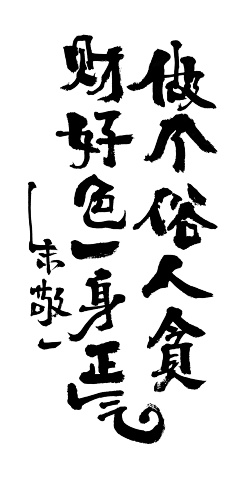 做个俗人贪
财好色一身正气
朱敬一